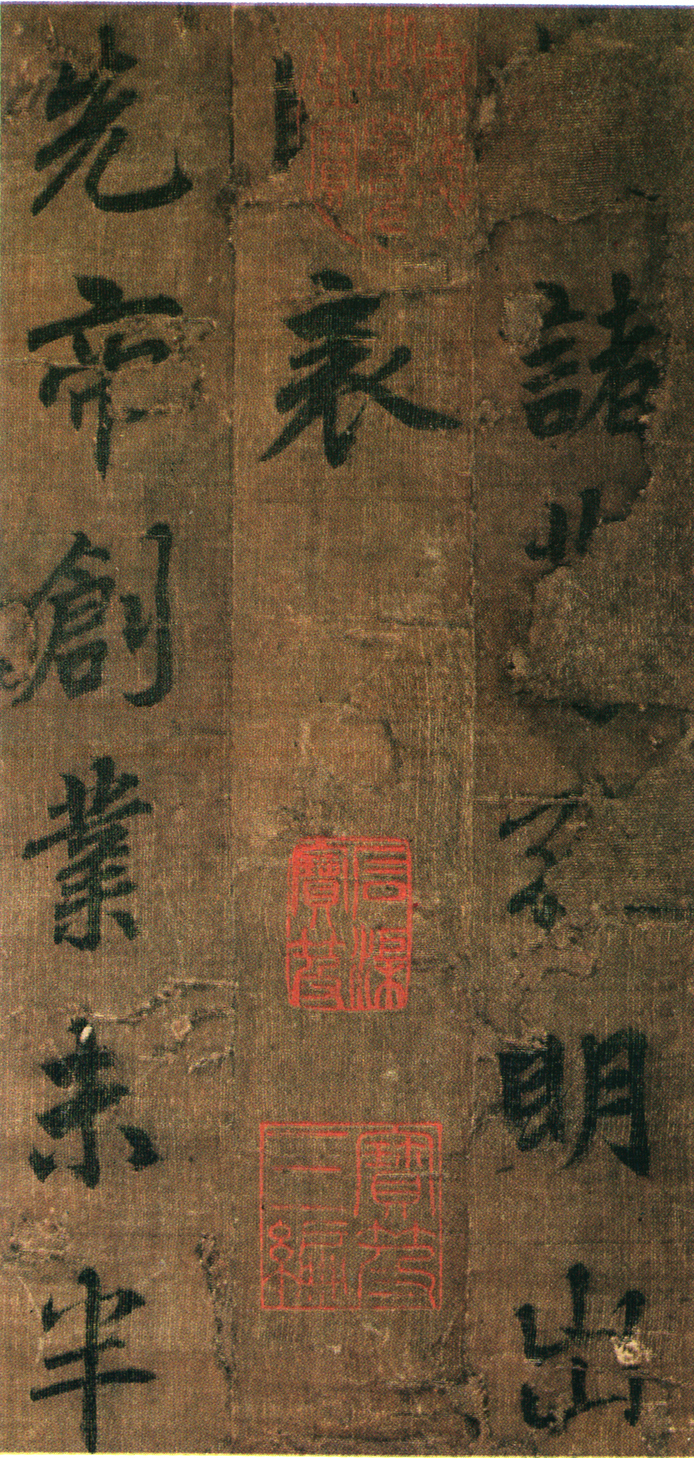 諸明出
表
石渠寶笈
寶笈三編
先帝創業未半